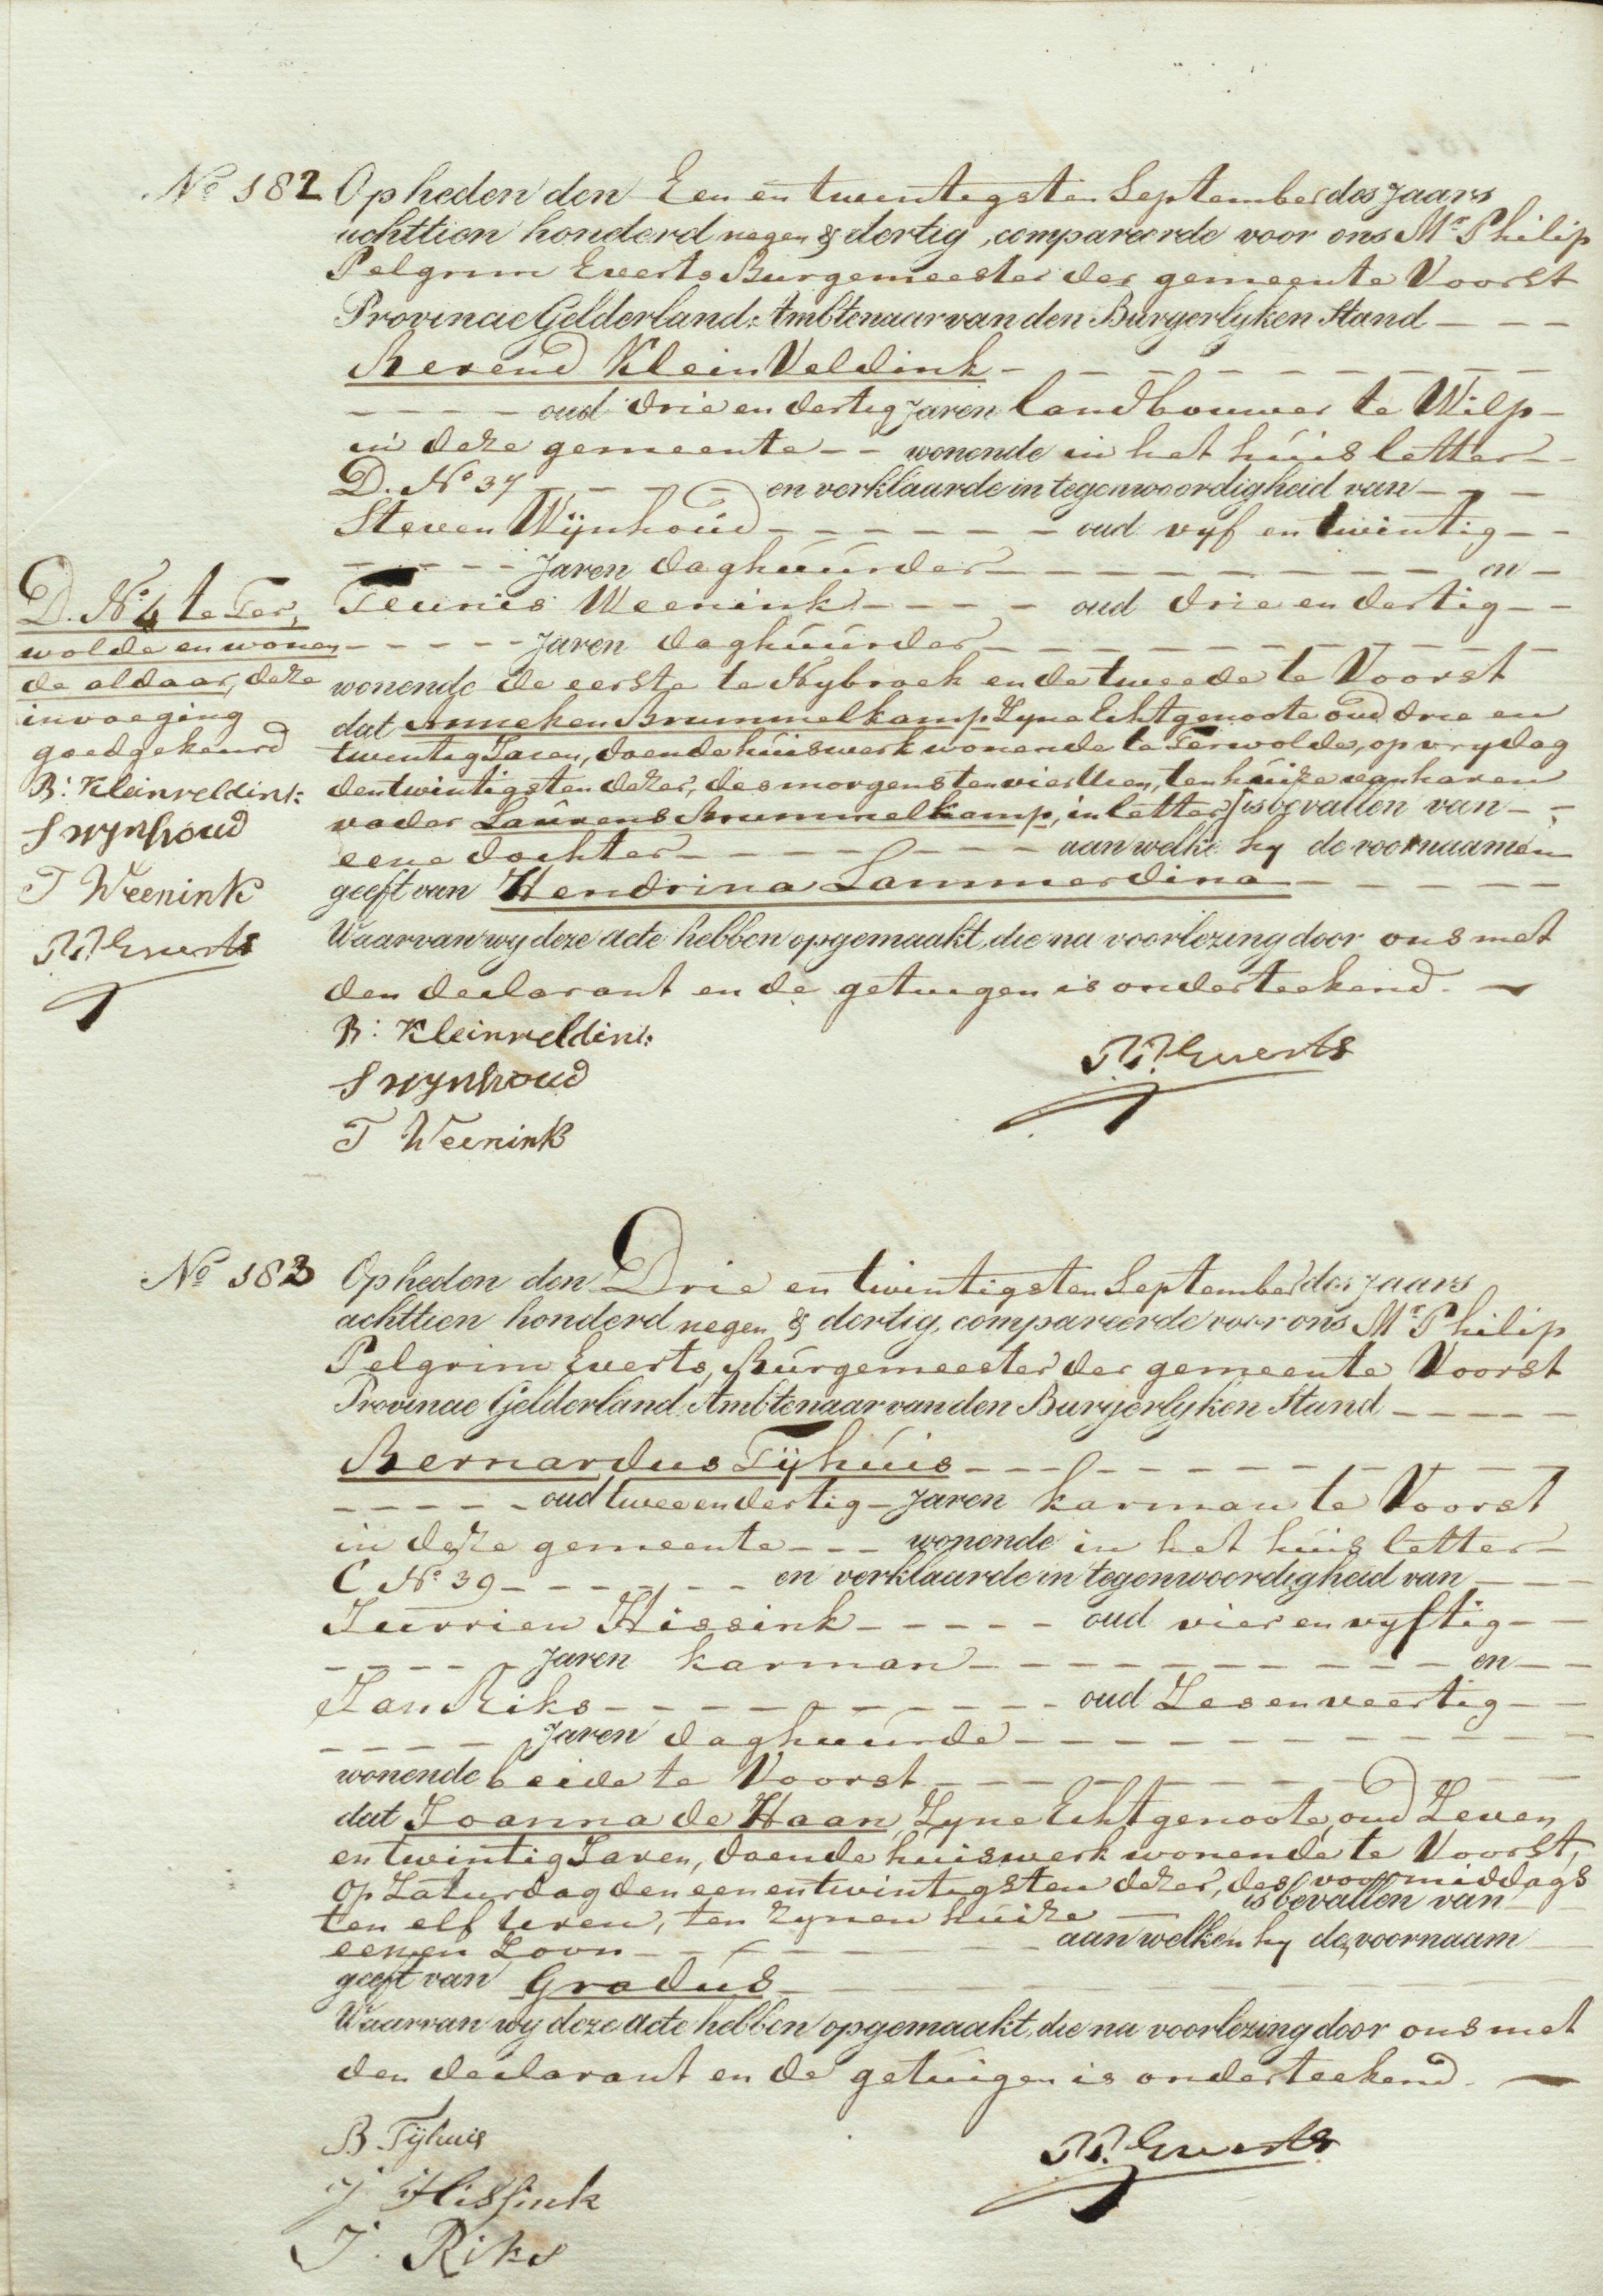 No 182 Op heden den Een en twentigsten September des Jaars
achttien honderd negen & dertig, compareerde voor ons Mr Philip
Pelgrim Everts Burgemeester der gemeente Voorst
Provincie Gelderland, Ambtenaar van den Burgerlyken Stand
Berend Klein Veldink
oud drie en dertig Jaren landbouwer te Wilp
in deze gemeente wonende in het huis letter
D. No 37 en verklaarde in tegenwoordigheid van
Steven Wijnhoud oud vyf en twintig
Jaren daghuurder en
Teunis Weenink oud drie en dertig
Jaren daghuurder
wonende de eerste te Nybroek en de tweede te Voorst
dat Anneken Brummelkamp, Zyne Echtgenoote oud drie en
twentig Jaren, doende huiswerk wonende te Terwolde, op vrydag
den twintigsten dezer, des morgens ten vier Uren, ten huize van haren
vader Laurens Brummelkamp, in letter is bevallen van
eene dochter aan welke hy de voornaamen
geeft van Hendrina Lammerdina
Waarvan wy deze acte hebben opgemaakt, die na voorlezing door ons met
den declarant en de getuigen is onderteekend.
B: Kleinveldink
S Wynhoud
T Weenink
P.P. Everts
D. No 4 te Ter,
wolde en wonen
de aldaar, deze
invoeging
goedgekeurd
B: Kleinveldink
S Wynhoud
T Weenink
P.P. Everts
No 183 Op heden den Drie en twintigsten September des Jaars
achttien honderd negen & dertig, compareerde voor ons Mr Philip
Pelgrim Everts, Burgemeester der gemeente Voorst
Provincie Gelderland, Ambtenaar van den Burgerlyken Stand
Bernardus Tijhuis
oud twee en dertig Jaren karman te Voorst
in deze gemeente wonende in het huis letter
C No 39 en verklaarde in tegenwoordigheid van
Jurrien Hissink oud vier en vyftig
Jaren karman en
Jan Riks oud Zes en veertig
Jaren daghuurde
wonende beide te Voorst
dat Joanna de Haan, Zyne Echtgenoote, oud Zeven
en twintig Jaren, doende huiswerk wonende te Voorst,
op Zaturdag den een en twintigsten dezer, des voormiddags
ten elf uren, ten zynen huize is bevallen van
eenen Zoon aan welken hy de voornaam
geeft van Gradus
Waarvan wy deze acte hebben opgemaakt, die na voorlezing door ons met
den declarant en de getuigen is onderteekend.
B Tijhuis
J Hissink
J. Riks
P.P. Everts